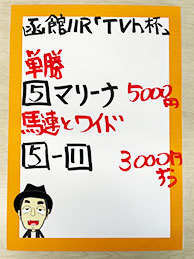 函館11R「TVh杯」
単勝
5マリーナ 5000円
馬連とワイド
5-11 3000円
ずつ